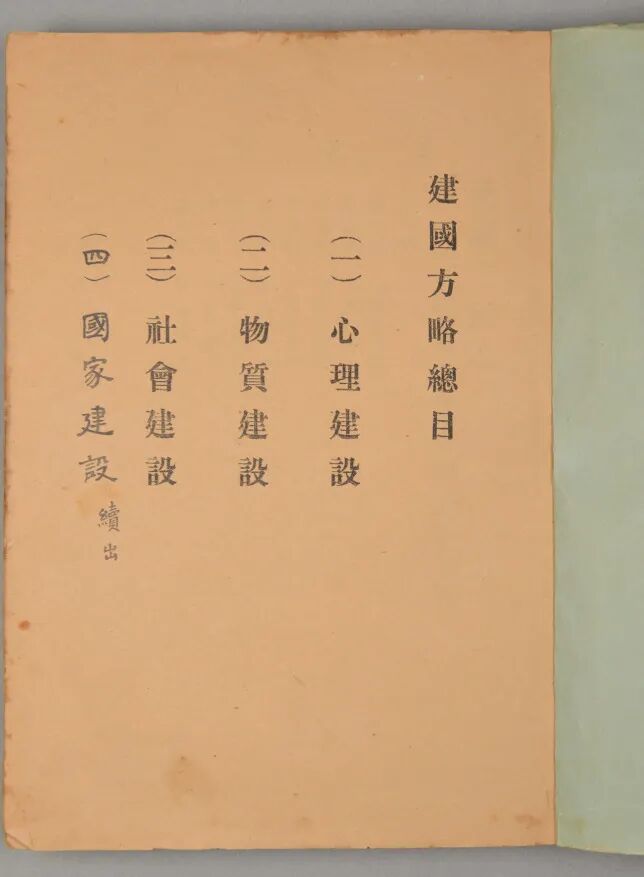 建國方略總目
（一）心理建設
（二）物質建設
（三）社會建設
（四）國家建設 續出